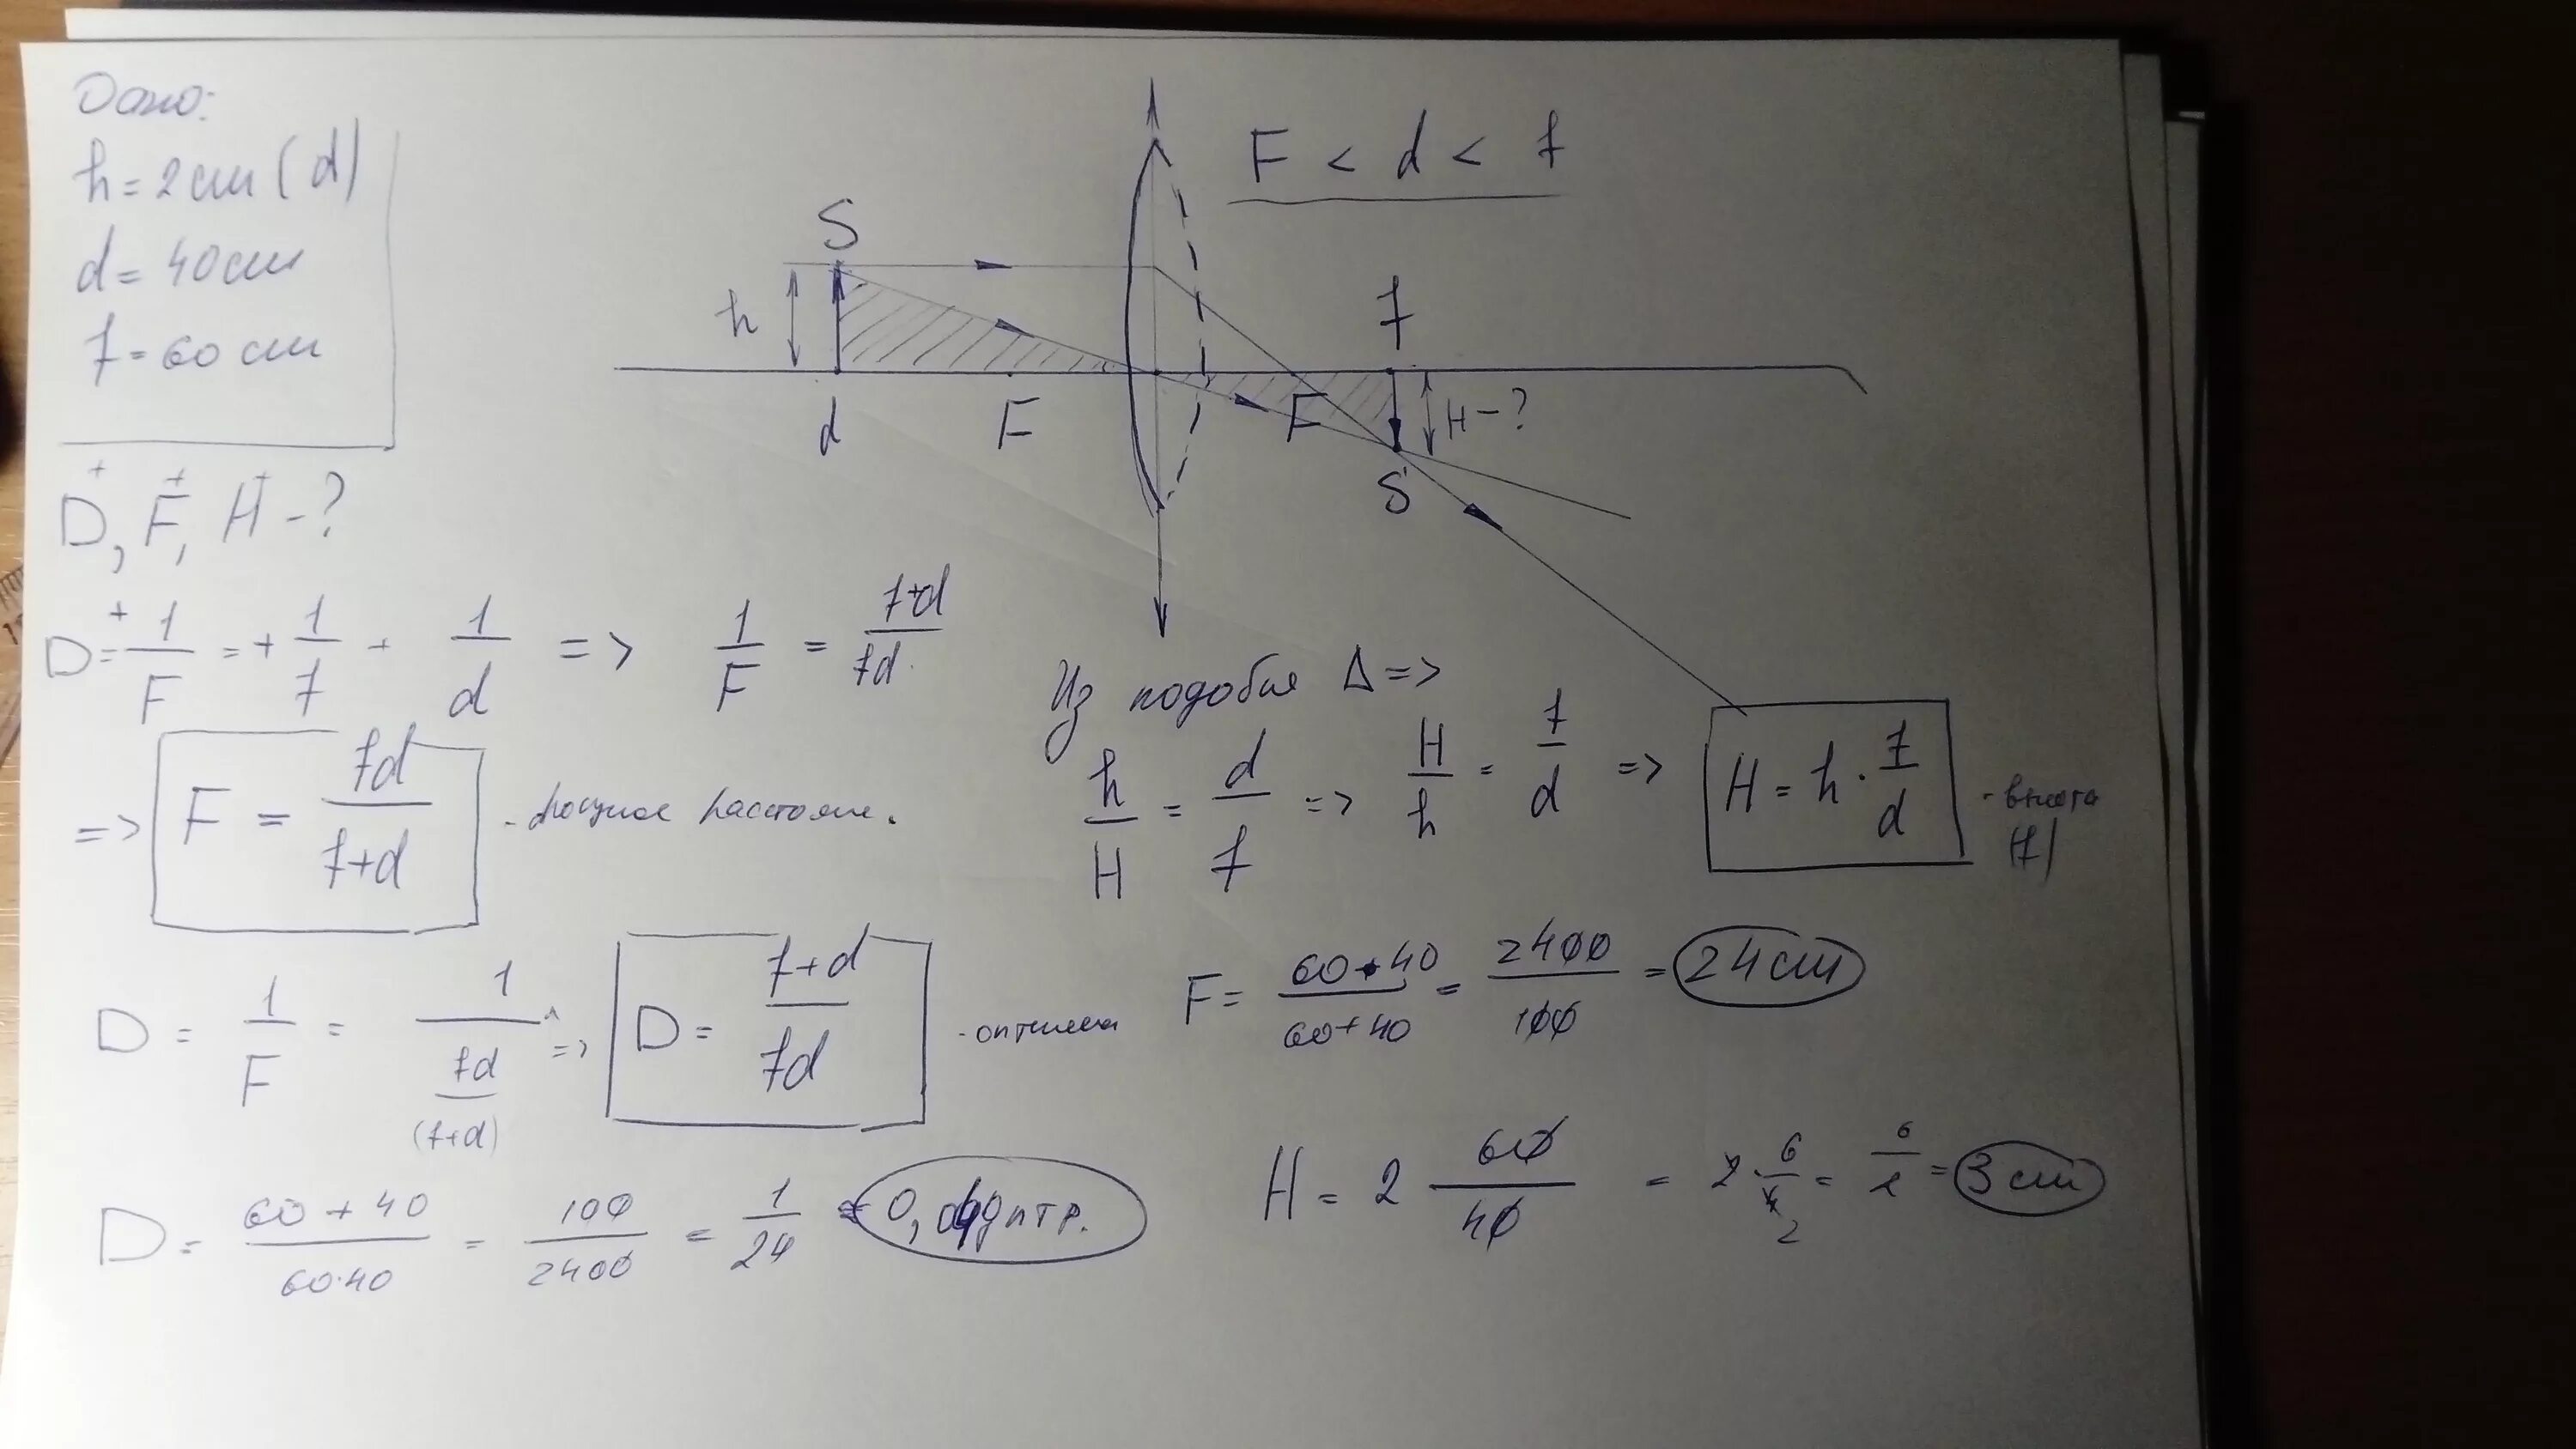 Дано:
h = 2 cm (d)
d = 40 cm
f = 60 cm
D, F, H - ?
F < d < f
S
h
d
F
F
f
H - ?
S
D = + 1/F = + 1/f + 1/d => 1/F = f+d/fd
=> F = fd/f+d - фокусное расстояние.
D = 1/F = 1/fd/(f+d) => D = f+d/fd - оптическая
D = 60 + 40/60·40 = 100/2400 = 1/24 = 0,04 дптр.
Из подобия Δ =>
h/H = d/f => H/h = f/d => H = h · f/d - высота (f)
F = 60·40/60+40 = 2400/100 = 24 cm
H = 2 60/40 = 2·6/4 2 = 6/2 = 3 cm